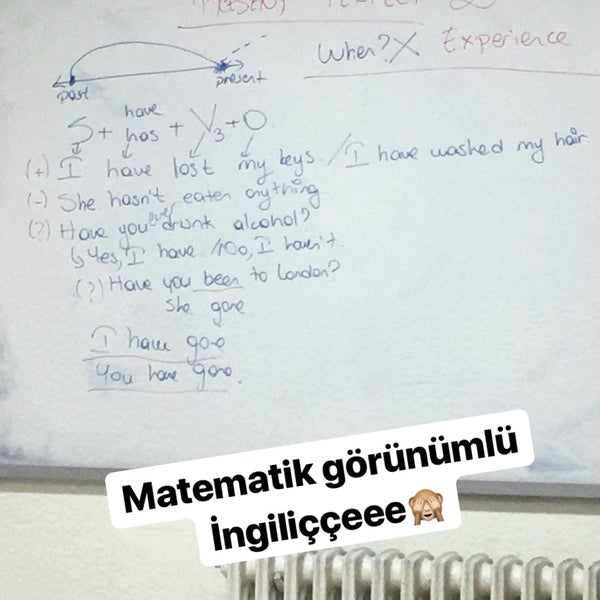 PRESENT PERFECT
When? X Experience
past present
have
S + has + V3 + O
(+) I have lost my keys. / I have washed my hair
(-) She hasn't eaten anything.
ever
(?) Have you drunk alcohol?
↳ Yes, I have / No, I haven't.
(?) Have you been to London?
She gone
I have gone
You have gone.
Matematik görünümlü
İngiliççeee🙈